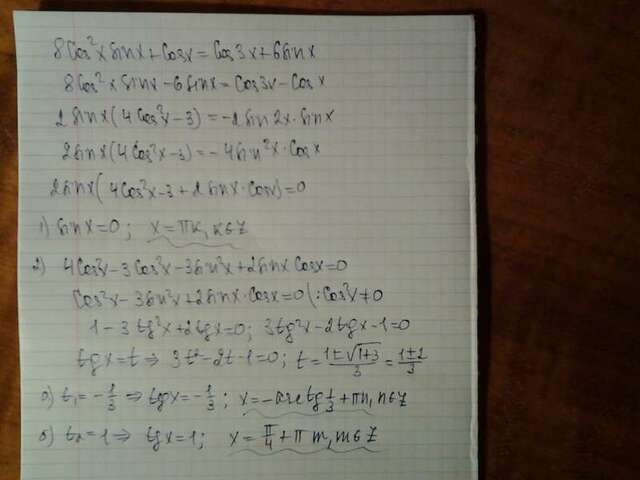 8cos²x sinx + cosx = cos3x + 6sinx
8cos²x sinx - 6sinx = cos3x - cosx
2sinx(4cos²x-3) = -2sin2x·sinx
2sinx(4cos²x-3) = -4sin²x·cosx
2sinx(4cos²x-3+2sinx·cosx)=0
1) sinx=0; x=πk, k∈Z
2) 4cos²x-3cos²x-3sin²x+2sinx cosx=0
cos²x-3sin²x+2sinx·cosx=0 (:cos²x≠0
1-3tg²x+2tgx=0; 3tg²x-2tgx-1=0
tgx=t ⇒ 3t²-2t-1=0; t=(1±√(1+3))/3=(1±2)/3
а) t₁=-1/3 ⇒ tgx=-1/3; x=-arctg 1/3+πn, n∈Z
б) t₂=1 ⇒ tgx=1; x=π/4+πm, m∈Z